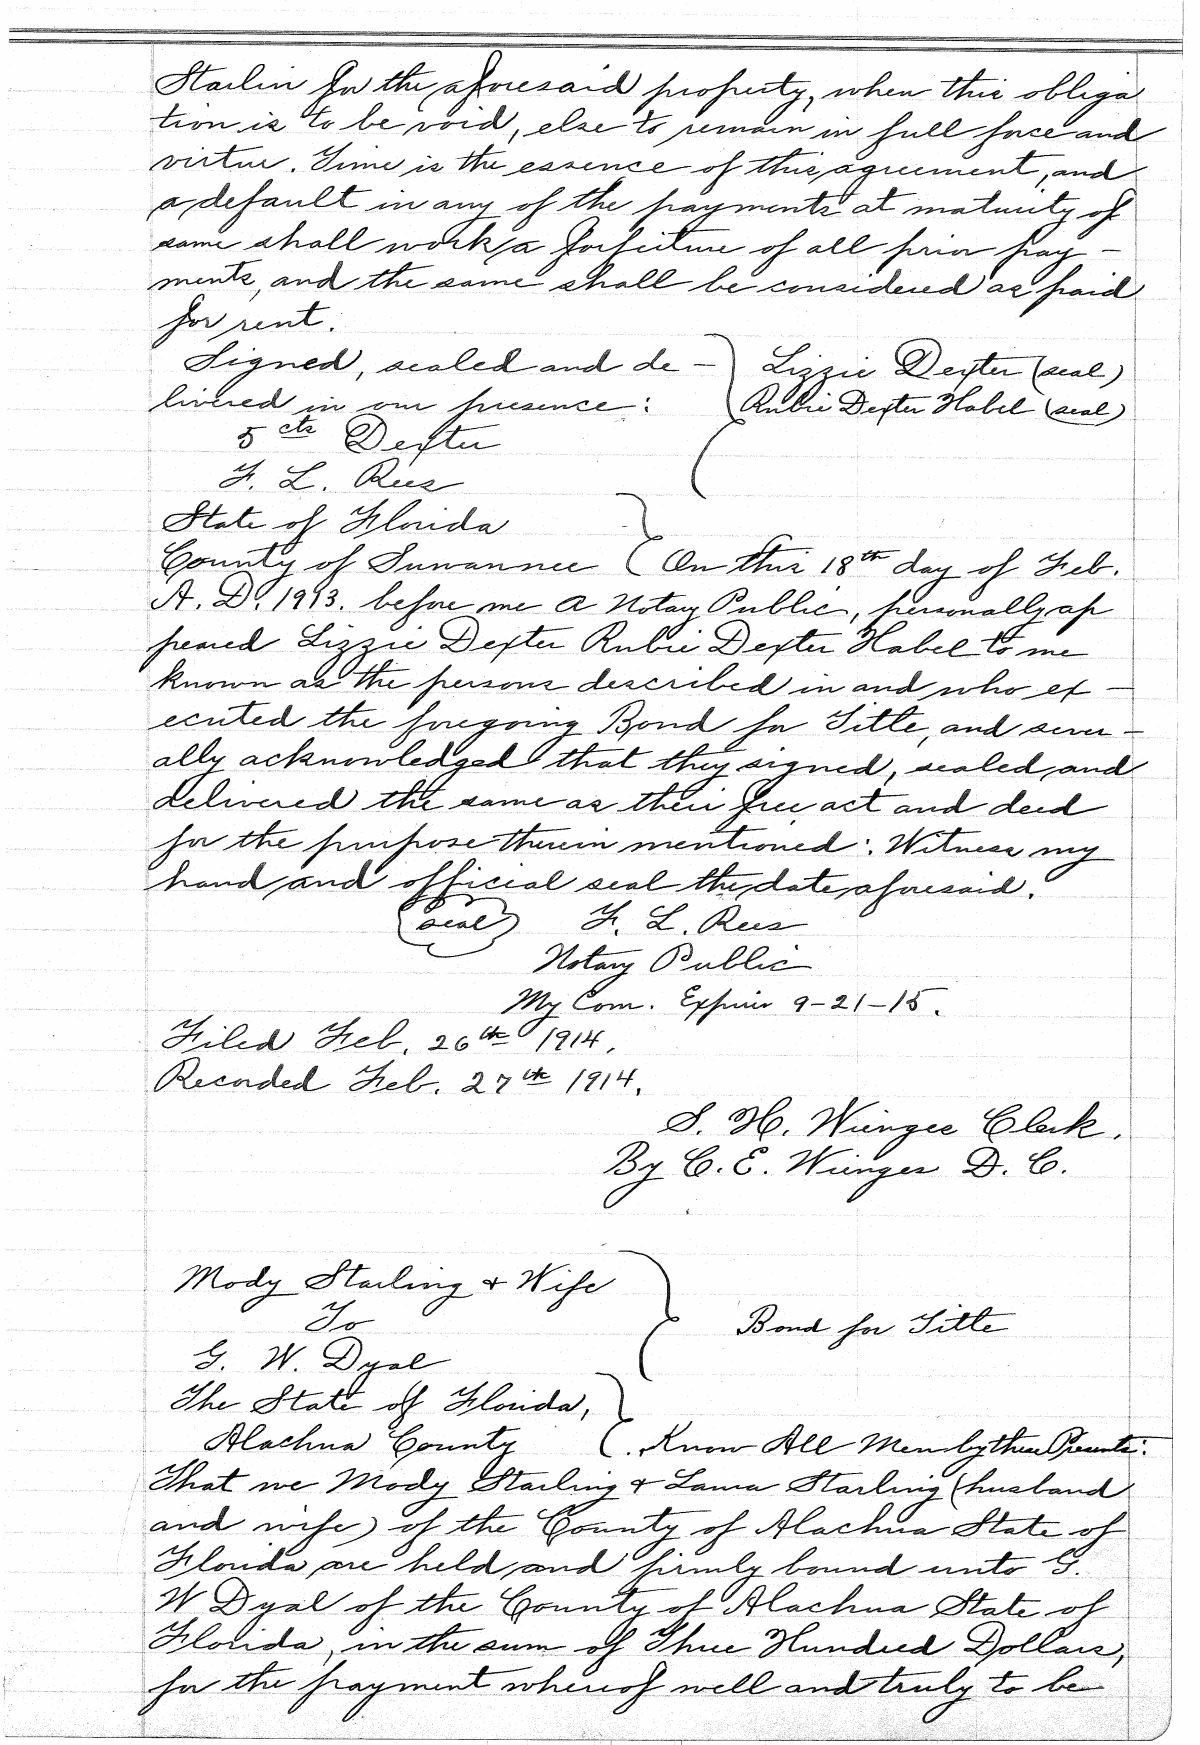 Starlin for the aforesaid property, when this obliga
tion is to be void, else to remain in full force and
virtue. Time is the essence of this agreement, and
a default in any of the payments at maturity of
same shall work a forfeiture of all prior pay -
ments, and the same shall be considered as paid
for rent.
Signed, sealed and de - Lizzie Dexter (seal)
livered in our presence: Rubie Dexter Habel (seal)
5 cts Dexter
F. L. Rees
State of Florida
County of Suwannee On this 18th day of Feb.
A. D. 1913. before me a Notary Public, personally ap
peared Lizzie Dexter Rubie Dexter Habel to me
known as the persons described in and who ex -
ecuted the foregoing Bond for Title, and sever -
ally acknowledged that they signed, sealed, and
delivered the same as their free act and deed
for the purpose therein mentioned: Witness my
hand, and official seal the date, aforesaid.
(seal) F. L. Rees
Notary Public
My Com. Expires 9-21-15.
Filed Feb. 26th 1914.
Recorded Feb. 27th 1914.
S. H. Wienges Clerk.
By C. E. Wienges D. C.
Mody Starling & Wife
To Bond for Title
G. W. Dyal
The State of Florida,
Alachua County Know All Men by these Presents:
That we Mody Starling & Laura Starling (husband
and wife) of the County of Alachua State of
Florida are held, and firmly bound unto G.
W Dyal of the County of Alachua State of
Florida, in the sum of Three Hundred Dollars,
for the payment whereof well and truly to be